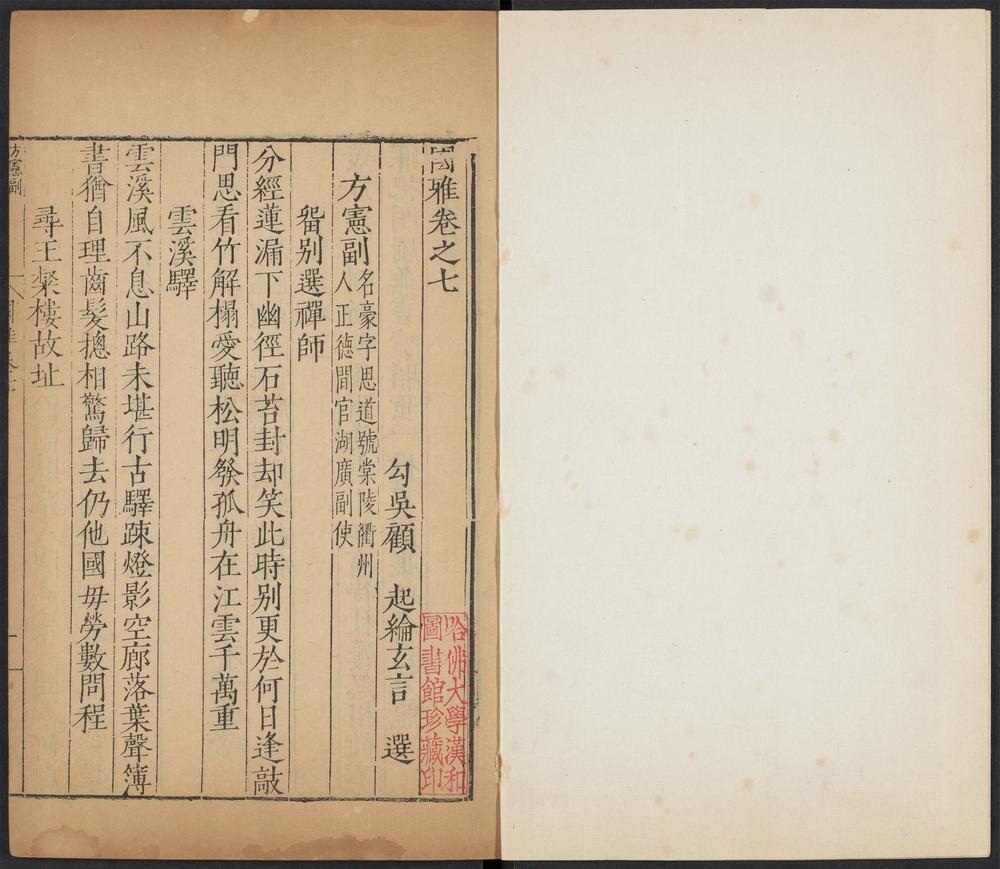 國雅卷之七
勾吳顧 起綸玄言 選
方憲副
名豪字思道號棠陵衢州
人正德間官湖廣副使
畱别選禪師
分經蓮漏下幽徑石苔封却笑此時别更於何日逢敲
門思看竹解榻愛聽松明發孤舟在江雲千萬重
雲溪驛
雲溪風不息山路未堪行古驛踈燈影空廊落葉聲簿
書猶自理齒髮摠相驚歸去仍他國毋勞數問程
尋王粲樓故址
方憲副
哈佛大學漢和
圖書館珍藏印